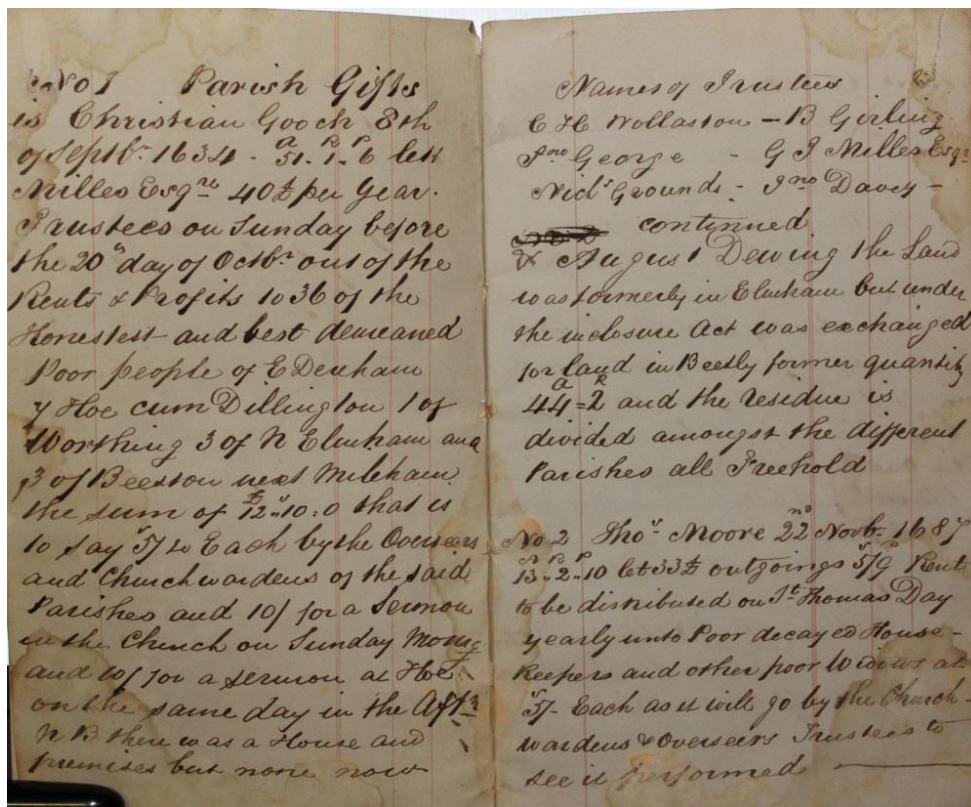 No 1 Parish Gifts
is Christian Gooch 8th
of Septbr. 1634 - A 51 - R 1 - P 6 let
Milles Esqre 40£ per Year.
Trustees on Sunday before
the 20th day of Octbr out of the
Rents & Profits to 36 of the
Honestest and best demeaned
Poor people of E Denham
7 Hoe cum Dillington 1 of
Worthing 3 of N Elmham and
3 of Beeston next Mileham
the sum of £12"10:0 that is
to say 5/ to Each by the Overseers
and Churchwardens of the said
Parishes and 10/ for a Sermon
in the Church on Sunday Morng
and 10/ for a Sermon at Hoe
on the same day in the Aftn
N B there was a House and
premises but none now
Names of Trustees
C H Wollaston - B Girling
Jno George - G J Milles Esqr
Nichs Grounds - Jno Davey -
continued
& August Dewing the Land
was formerly in Elmham but under
the inclosure Act was exchanged
for land in Beetly former quantity
A 44 = R 2 and the residue is
divided amongst the different
Parishes all Freehold
No 2 Thos Moore 22nd Novbr. 1687
A 13 " R 2 " P 10 let 33£ outgoings 5/9 Rent
to be distributed on St Thomas Day
yearly unto Poor decayed House-
keepers and other poor Widows at
5/- Each as it will go by the Church-
wardens & Overseers Trustees to
see it performed